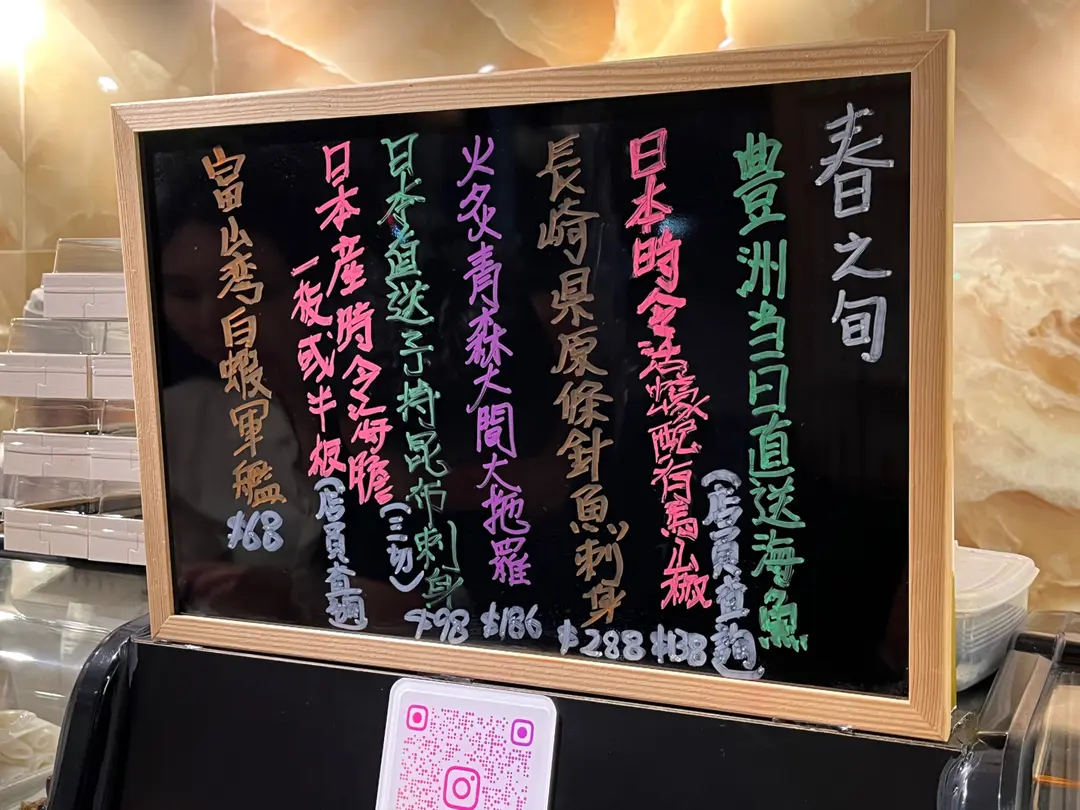 春之旬
豊洲当日直送海魚
(店員查詢)
日本時令活蠔配有馬山椒
$138
長崎県原條針魚刺身
$288
火炙青森大間大拖羅
$186
日本直送子持昆布刺身
(三切)
$98
日本産時令海膽
一板或半板
(店員查詢)
富山湾白蝦軍艦
$68